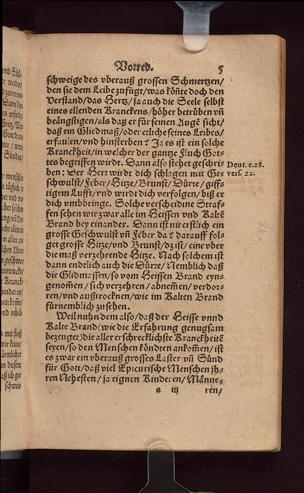 Vorred. 5
schweige des vberauß grossen Schmertzen/
den sie dem Leibe zufügt/was könte doch den
Verstand/das Hertz/ja auch die Seele selbst
eines ellenden Kranckens/höher betrüben vñ
beängstigen/als daß er für seinen Augē sicht/
daß ein Gliedmaß/oder etliche seines Leibes/
erfaulen/vnd hinsterben? Ja es ist ein solche
Kranckheit/in welcher der gantze Fluch Got-
tes begriffen wirdt. Dann also stehet geschri-
ben: Der Herr wird dich schlagen mit Ge-
schwulst/Feber/Hitze/Brunst/Dürre/giff-
tigem Lufft/vnd wirdt dich verfolgen/biß er
dich vmbbringe. Solche verscheidine Straf-
fen sehen wir zwar alle im Heissen vnd Kaltē
Brand bey einander. Dann ist nit erstlich ein
grosse Geschwulst vñ Feber da? darauff fol-
get grosse Hitze/vnd Brunst/dz ist/eine vber
die maß verzehrende Hitze. Nach solchem ist
dann endtlich auch die Dürre/Nemblich daß
die Glidmassen/so vom Heissen Brand eyn-
genomen/sich verzehren/abnemen/verdor-
ren/vnd außtrocknen/wie im Kalten Brand
fürnemblich zu sehen.
Weil nuhn dem also/daß der Heisse vnnd
Kalte Brand (wie die Erfahrung genugsam
bezeuget) die aller erschrecklichste Kranckheitē
seyen/so den Menschen köndten ankomen/ist
es zwar ein vberauß grosses Laster vñ Sünd
für Gott/daß viel Epicurische Menschen jh-
ren Nehesten/ja eignen Kinderen/Männe-
a iij ren/
Deut. c. 28.
vers. 22.